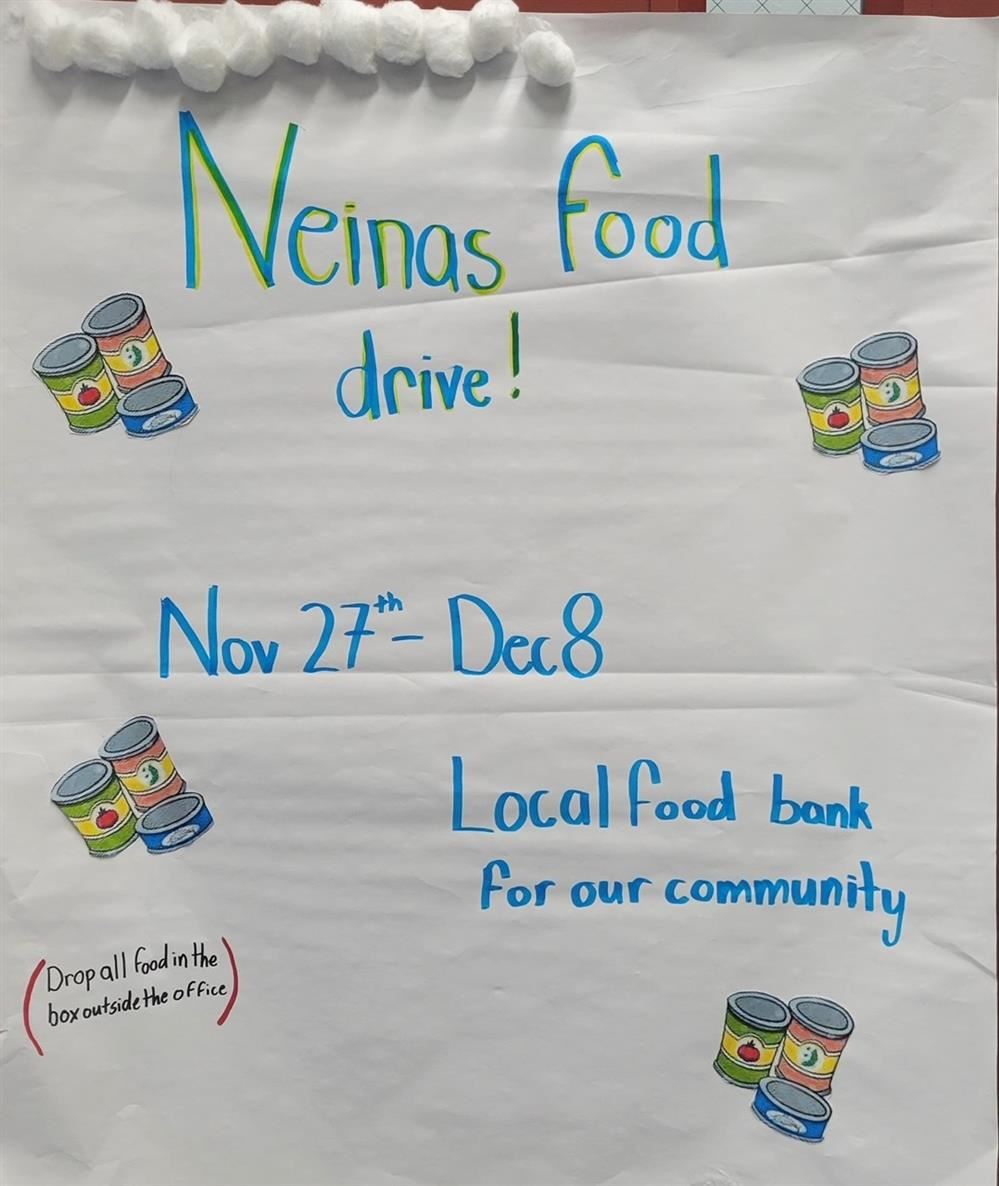 Neinas food
drive!
Nov 27th - Dec 8
Local food bank
for our community
(Drop all food in the
box outside the office)